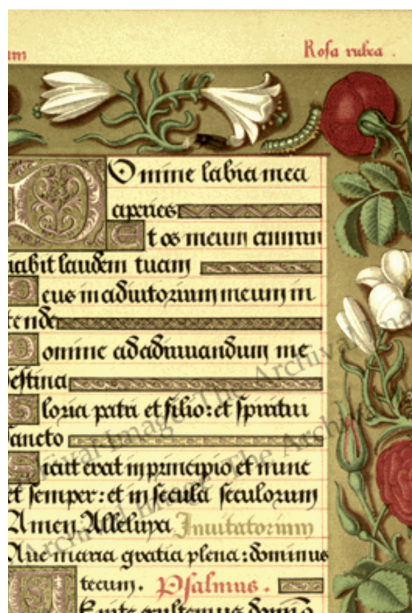 um Rosa rubea.
Domine labia mea
aperies
Et os meum annun
tiabit laudem tuam
Deus in adiutorium meum in
tende
Domine ad adiuuandum me
festina
Gloria patri et filio: et spiritui
sancto
Sicut erat in principio et nunc
et semper: et in secula seculorum
Amen. Alleluya Inuitatorium
Aue maria gratia plena: dominus
tecum. Psalmus.
The Archival Image
The Archival Image